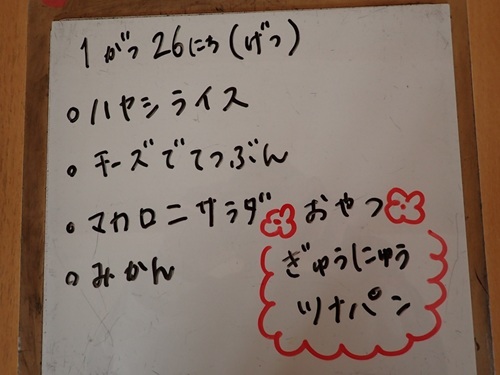 1がつ26にち(げつ)
ハヤシライス
チーズでてつぶん
マカロニサラダ
みかん
おやつ
ぎゅうにゅう
ツナパン